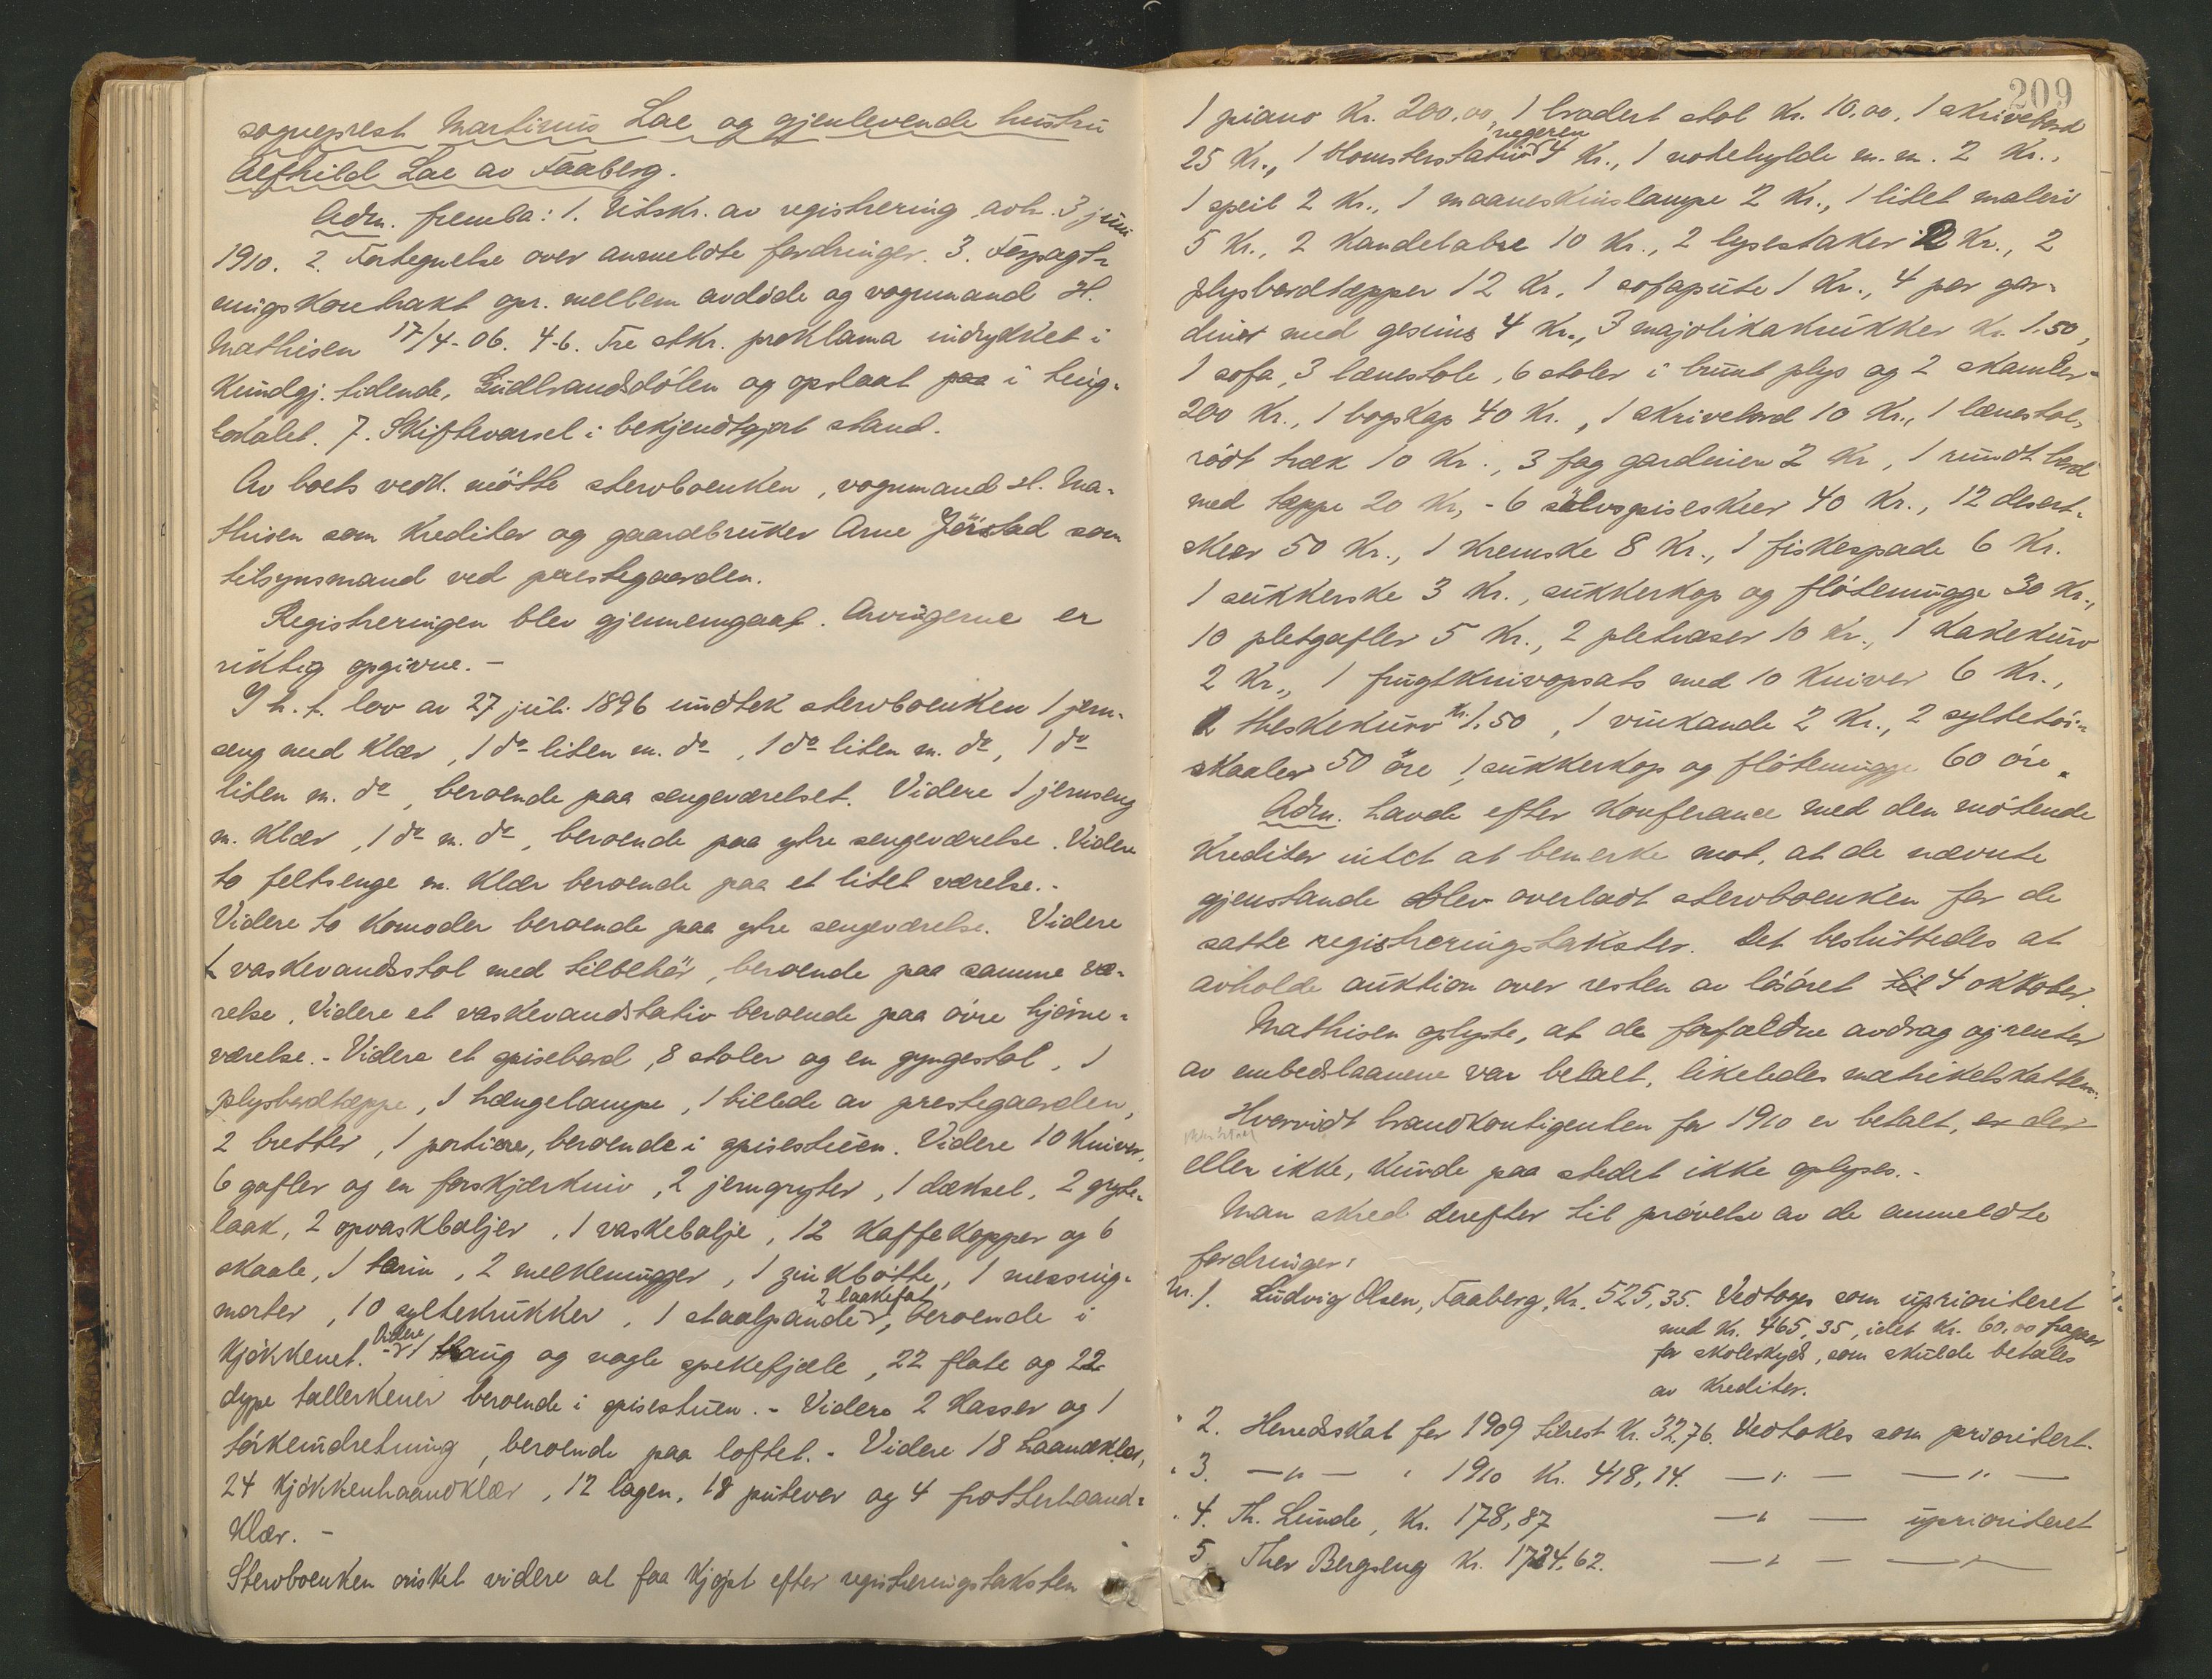 sogneprest Martinus Lae og gjenlevende hustru
Alfhild Lae av Faaberg.
Adm. fremla: 1. Utskr. av registrering avh. 3 juni
1910. 2. Fortegnelse over anmeldte fordringer. 3. Forpagt-
ningskontrakt opr. mellem avdöde og vognmand H.
Mathisen 17/4-06. 4-6. Tre etkr. proklama indrykket i
Kundgj. tidende, Gudbrandsdölen og opslaat paa i ting-
lokalet. 7. Skiftevarsel i bekjendtgjort stand.
Av boets vedk. mötte sterboenken, vognmand H. Ma-
thisen som kreditor og gaardbruker Arne Jörstad som
tilsynsmand ved prestegaarden.
Registreringen blev gjennemgaat. Arvingerne er
riktig opgivne. -
I h. t. lov av 27 juli 1896 undtok stervboenken 1 jern-
seng med klær, 1 do liten m. do, 1 do liten m. do, 1 do
liten m. do, beroende paa sengeværelset. Videre 1 jernseng
m. klær, 1 do m. do, beroende paa ytre sengeværelse. Videre
to feltsenge m. klær beroende paa et litet værelse. -
Videre to komoder beroende paa ytre sengeværelse. Videre
1 vaskevandsstol med tilbehör, beroende paa samme væ-
relse. Videre et vaskevandstativ beroende paa övre hjörne-
værelse. - Videre et spisebord, 8 stoler og en gyngestol, 1
plysbordtæppe, 1 hængelampe, 1 billede av prestegaarden,
2 bretter, 1 portiere, beroende i spisestuen. Videre 10 kniver,
6 gafler og en forskjærkniv, 2 jerngryter, 1 dæksel, 2 gryte-
laak, 2 opvaskbaljer, 1 vaskebalje, 12 kaffekopper og 6
skaale, 1 terin, 2 melkemugger, 1 zinkbötte, 1 messing-
morter, 10 syltekrukker, 1 staalpande, 2 laakefat, beroende i
kjökkenet. - Videre 1 traug og nogle spekefjæle, 22 flate og 22
dype tallerkener beroende i spisestuen. - Videre 2 kasser og 1
törkeindretning, beroende paa loftet. - Videre 18 haandklær,
24 kjökkenhaandklær, 12 lagen, 18 putevar og 4 frotterhaand-
klær. -
Stervboenken önsket videre at faa kjöpt efter registreringstaksten
209
1 piano Kr. 200,00, 1 brodert stol Kr. 10,00, 1 skrivebord
25 Kr., 1 blomsterstativ, negeren 4 Kr., 1 notehylde m. m. 2 Kr.,
1 speil 2 Kr., 1 maaneskinslampe 2 Kr., 1 litet maleri
5 Kr., 2 kandelabre 10 Kr., 2 lysestaker 2 Kr., 2
plysbordtæpper 12 Kr., 1 sofapute 1 Kr., 4 par gar-
diner med gesims 4 Kr., 3 majolikakrukker Kr. 1.50,
1 sofa, 3 lænestole, 6 stoler i brunt plys og 2 skamler -
200 Kr., 1 bogskap 40 Kr., 1 skrivebord 10 Kr., 1 lænestol,
rödt træk 10 Kr., 3 fag gardiner 2 Kr, 1 rundt bord
med tæppe 20 Kr, - 6 sölvspiseskeer 40 Kr., 12 desert-
skeer 50 Kr., 1 kremske 8 Kr., 1 fiskespade 6 Kr.
1 sukkerske 3 Kr., sukkerkop og flötemugge 30 Kr.,
10 pletgafler 5 Kr., 2 pletvaser 10 Kr., 1 kakekurv
2 Kr., 1 frugtknivopsats med 10 kniver 6 Kr.,
1 theskekurv Kr. 1.50, 1 vinkande 2 Kr., 2 syltetöi-
skaaler 50 öre, 1 sukkerkop og flötemugge 60 öre.
Adm. havde efter konferance med den mötende
kreditor intet at bemerke mot, at de nævnte
gjenstande blev overladt stervboenken for de
satte registreringstakster. Det besluttedes at
avholde auktion over resten av lösöret til 4 oktober.
Mathisen oplyste, at de forfaldne avdrag og renter
av embedslaanene var betalt, likeledes matrikelskatten.
Hvorvidt brandkontigenten for 1910 er betalt, er der
eller ikke, kunde paa stedet ikke oplyses. -
Man skred derefter til prövelse av de anmeldte
fordringer:
Nr. 1. Ludvig Olsen, Faaberg, Kr. 525,35. Vedtages som uprioriteret
med Kr. 465,35, idet Kr. 60,00 fragaar
for skoleskyds, som skulde betales
av kreditor.
" 2. Herredsskat for 1909 tilrest Kr. 32,76. Vedtokes som prioritert.
" 3. -"- " 1910 Kr. 418,14. -"- -"-
" 4. Th. Lunde, Kr. 178,87 -"- uprioriteret
5. Thor Bergseng Kr. 1724,62. -"- -"-